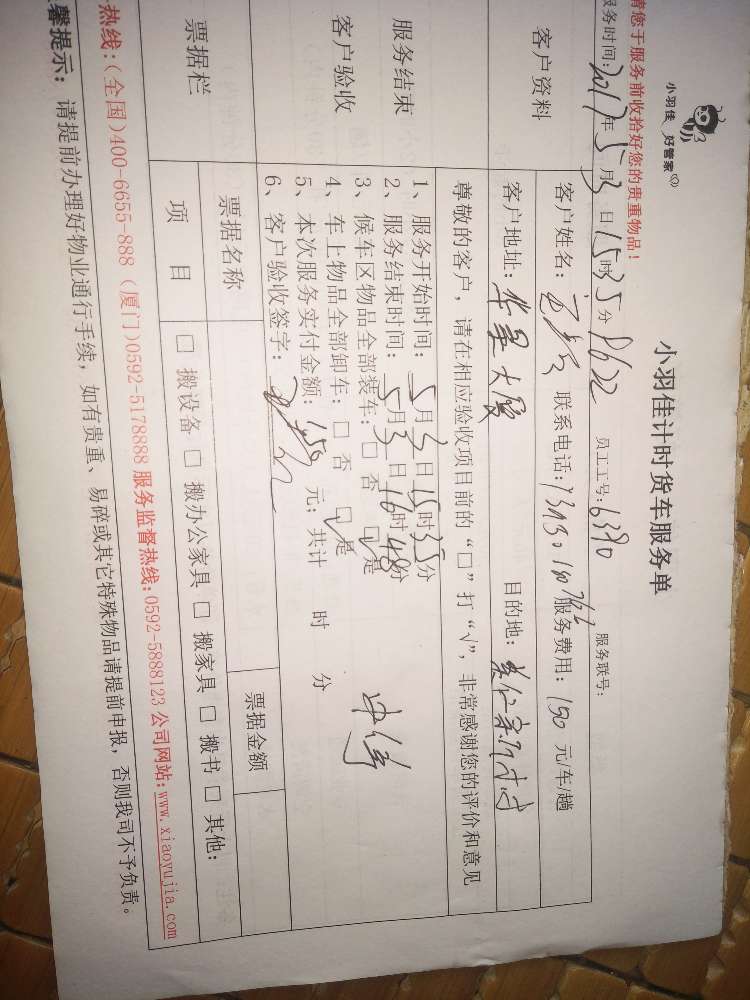 小羽佳 好管家
小羽佳计时货车服务单
请您于服务前收拾好您的贵重物品！
服务时间：2017年5月3日15时35分 D622 员工工号：6390 服务联号：
客户资料
客户姓名： 联系电话： 服务费用：150元/车/趟
客户地址：华星大厦 目的地：
尊敬的客户，请在相应验收项目前的“□”打“√”，非常感谢您的评价和意见
服务结束
客户验收
1、服务开始时间：5月3日15时35分
2、服务结束时间：5月3日16时48分
3、候车区物品全部装车：□ 否 □√是
4、车上物品全部卸车：□ 否 □√是
5、本次服务实付金额：150元；共计 时 分
6、客户验收签字：
票据栏
票据名称 票据金额
项目 □ 搬设备 □ 搬办公家具 □ 搬家具 □ 搬书 □ 其他：
热线：(全国)400-6655-888 (厦门)0592-5178888 服务监督热线：0592-5888123 公司网站：www.xiaoyujia.com
馨提示： 请提前办理好物业通行手续，如有贵重、易碎或其它特殊物品请提前申报，否则我司不予负责。